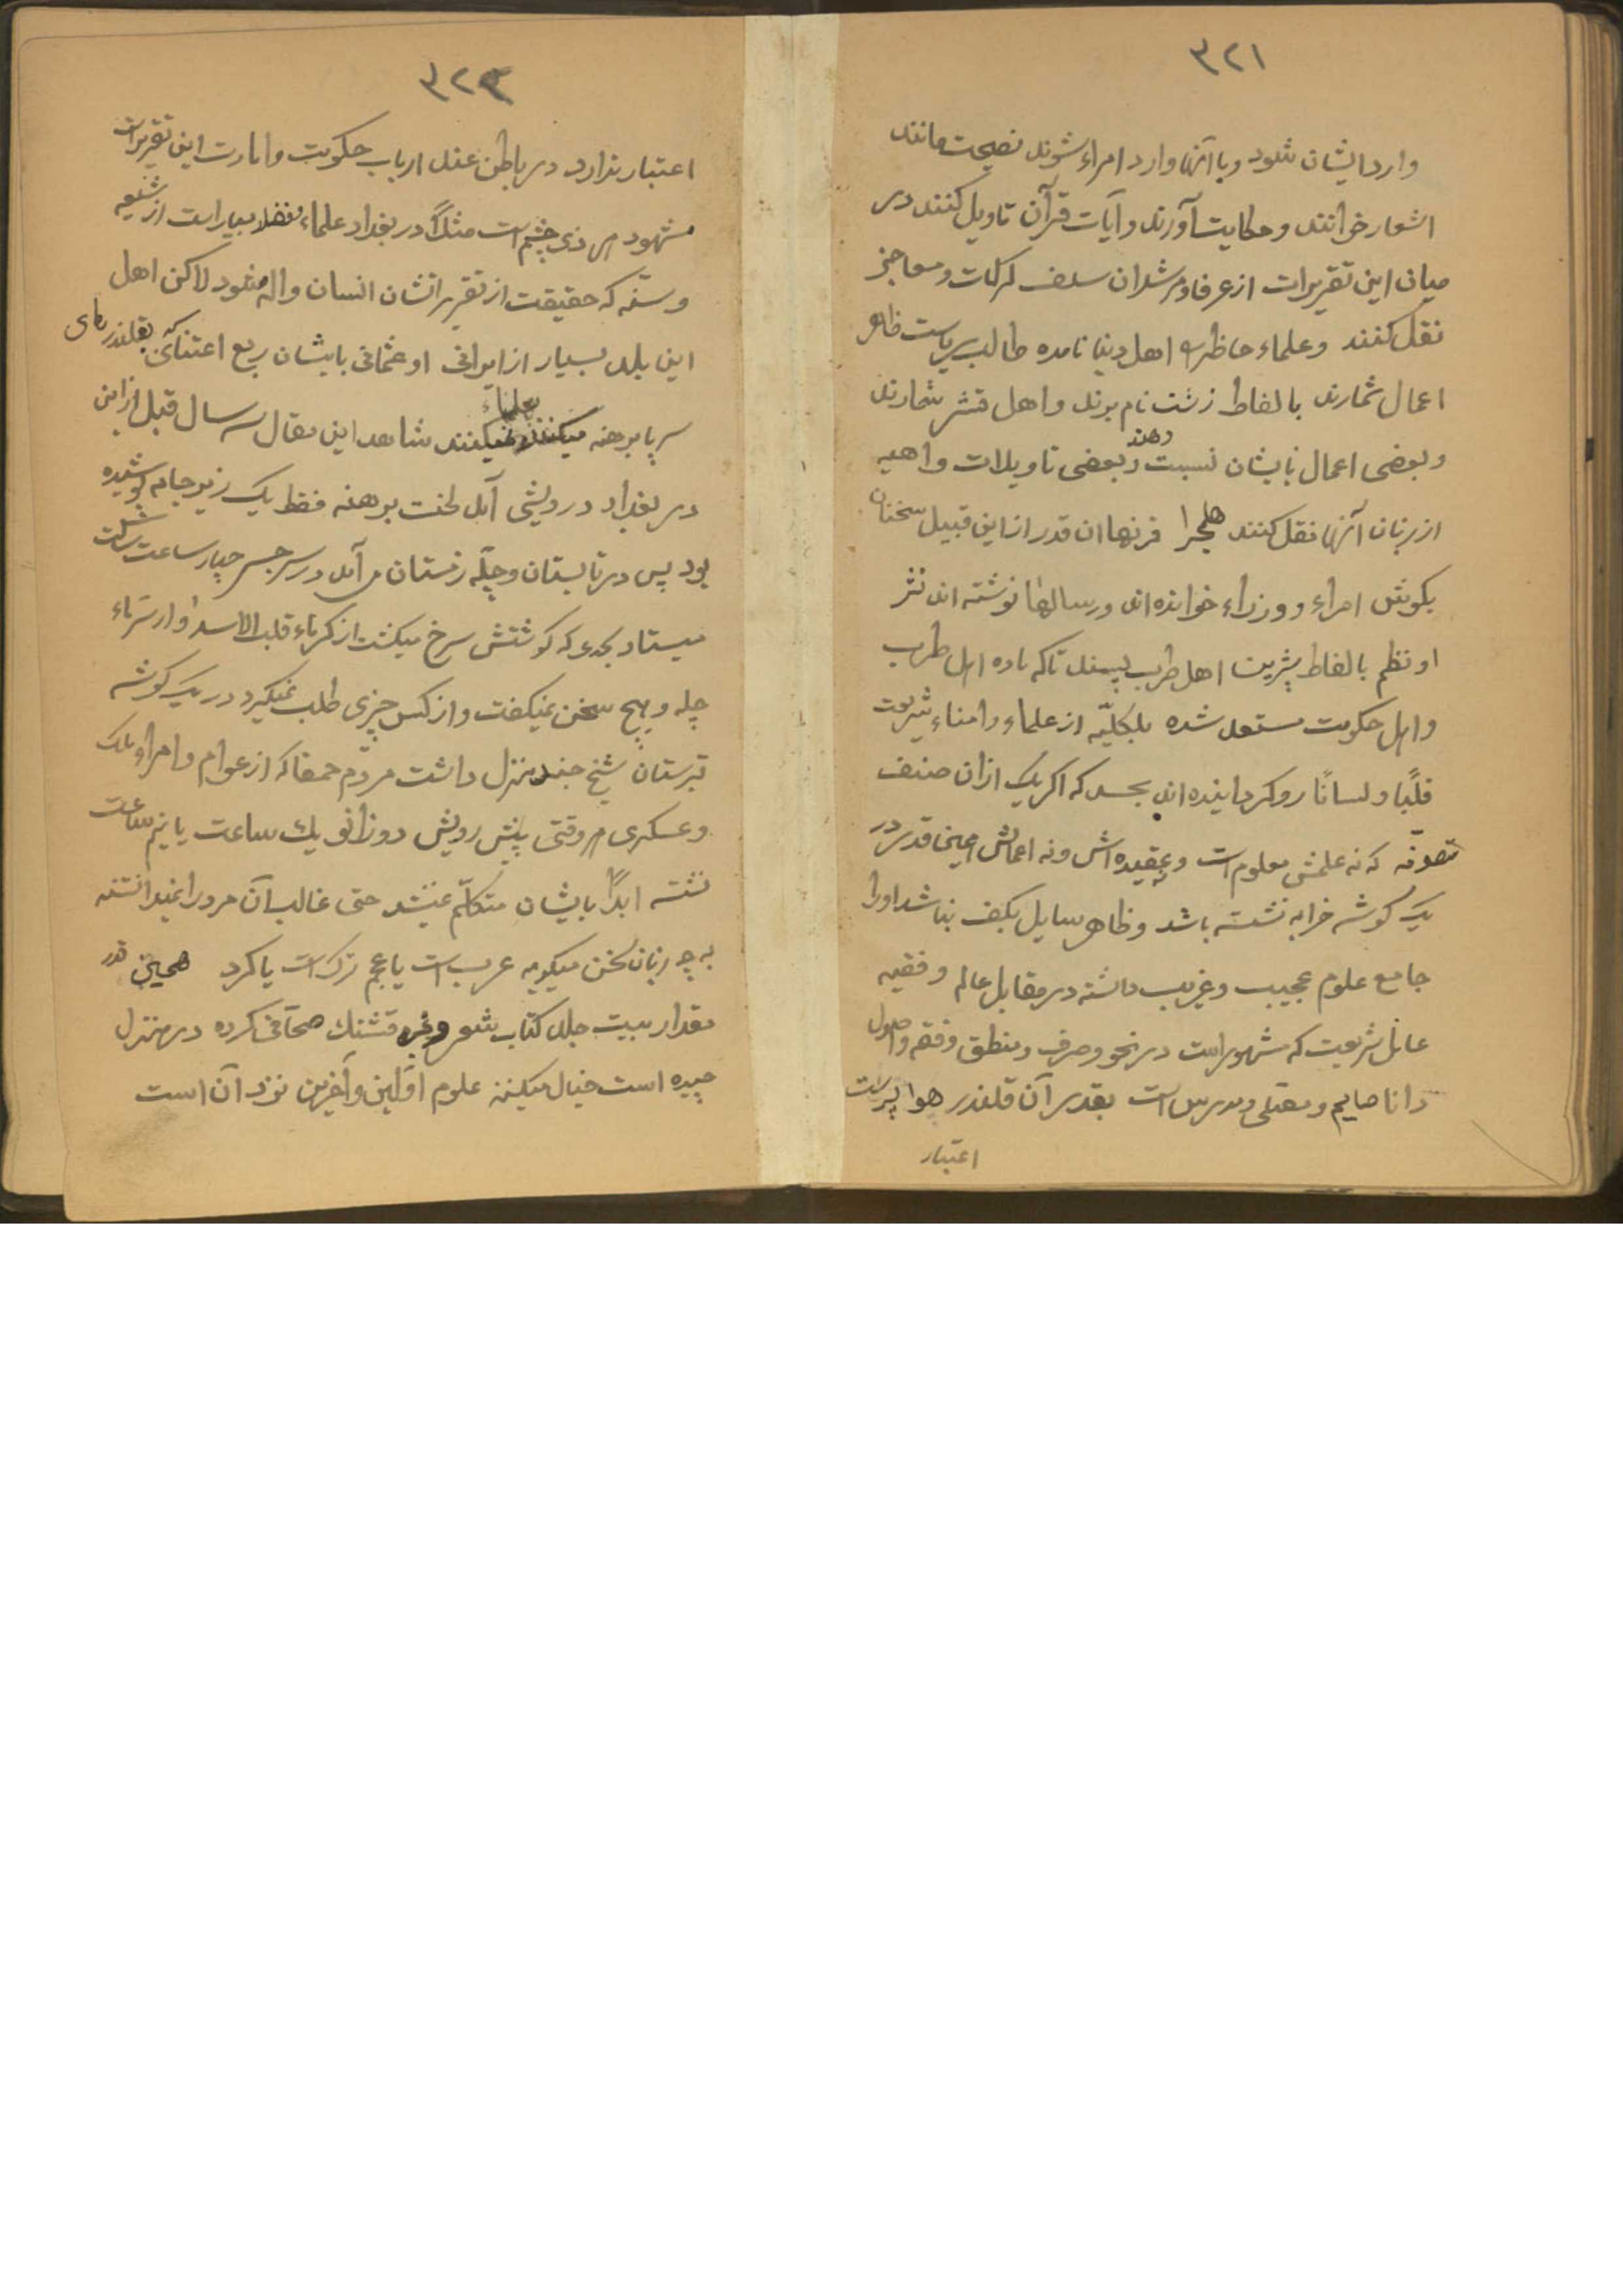 ۳۲۱
وارد ایشان شود و با آنها وارد امراء شوند نصیحت مانند
اشعار خوانند و حکایت آورند و آیات قرآن تاویل کنند در
میان این تقریرات از عرفا و مرشدان سلف کرامات و معاجز
نقل کنند و علماء حاظره اهل دنیا نامده طالب ریاست ظاهر
اعمال شمارند بالفاط زشت نام برند و اهل قشر شمارند
و بعضی اعمال بایشان نسبت دهند و بعضی تاویلات واهیه
از زبان آنها نقل کنند هلمجرا قرنها ان قدر از این قبیل سخنان
بکوش امراء و وزراء خوانده اند و رسالها نوشته اند نثر
او نظم بالفاط شیرین اهل طرب پسند تا که ماده اهل طرب
و اهل حکومت مستعد شده بلکلیّه از علماء و امناء شریعت
قلبًا و لسانًا رو کردانیده اند بحدی که اکر یک ازان صنف
تصوفه که نه علمش معلوم است و نه عقیده اش و نه اعمالش همین قدر در
یک کوشه خرابه نشسته باشد و ظاهر سایل بکف نباشد او را
جامع علوم عجیب و غریب دانسته در مقابل عالم و فقیه
عامل شریعت که مشهور است در نحو و صرف و منطق و فقه و اصول
دانا صایم و مصلی و مدرس است بقدر آن قلندر هوا پرست
اعتبار
۳۲۳
اعتبار ندارد در باطن عند ارباب حکومت و امارت این تقریرات
مشهود هر ذی چشم است مثلاً در بغداد علماء فضلا بسیار است از شیعه
و سنّه که حقیقت از تقریراتشان انسان واله میشود لاکن اهل
این بلد بسیار از ایرانی او عثمانی بایشان ربع اعتنائی که بقلندرهای
سر پا برهنه میکنند بعلماء نمیکنند شاهد این مقال سه سال قبل از این
در بغداد درویشی آمد لخت برهنه فقط یک زیر جامه پوشیده
بود پس در تابستان و چلّه زمستان می آمد در سر جسر چهار ساعت ساکت
میستاد بحدی که کوشتش سرخ میکشت از کرماء قلب الاسد او از سرماء
چله و هیچ سخن نمیکفت و از کس چیزی طلب نمیکرد در یک کوشه
قبرستان شیخ جنید منزل داشت مردم حمقا که از عوام و امراء ملک
و عسکری هر وقتی پیش رویش دو زانو یک ساعت یا نیم ساعت
نشسته ابدًا بایشان متکلّم نمیشد حتی غالب آن مرد را نمیدانستند
به چه زبان سخن میکوید عرب است یا عجم ترک است یا کرد همین قدر
مقدار بیست جلد کتاب شعر و غیره قشنک صحافی کرده در منزل
چیده است خیال میکنند علوم اوّلین و آخرین نزد آن است